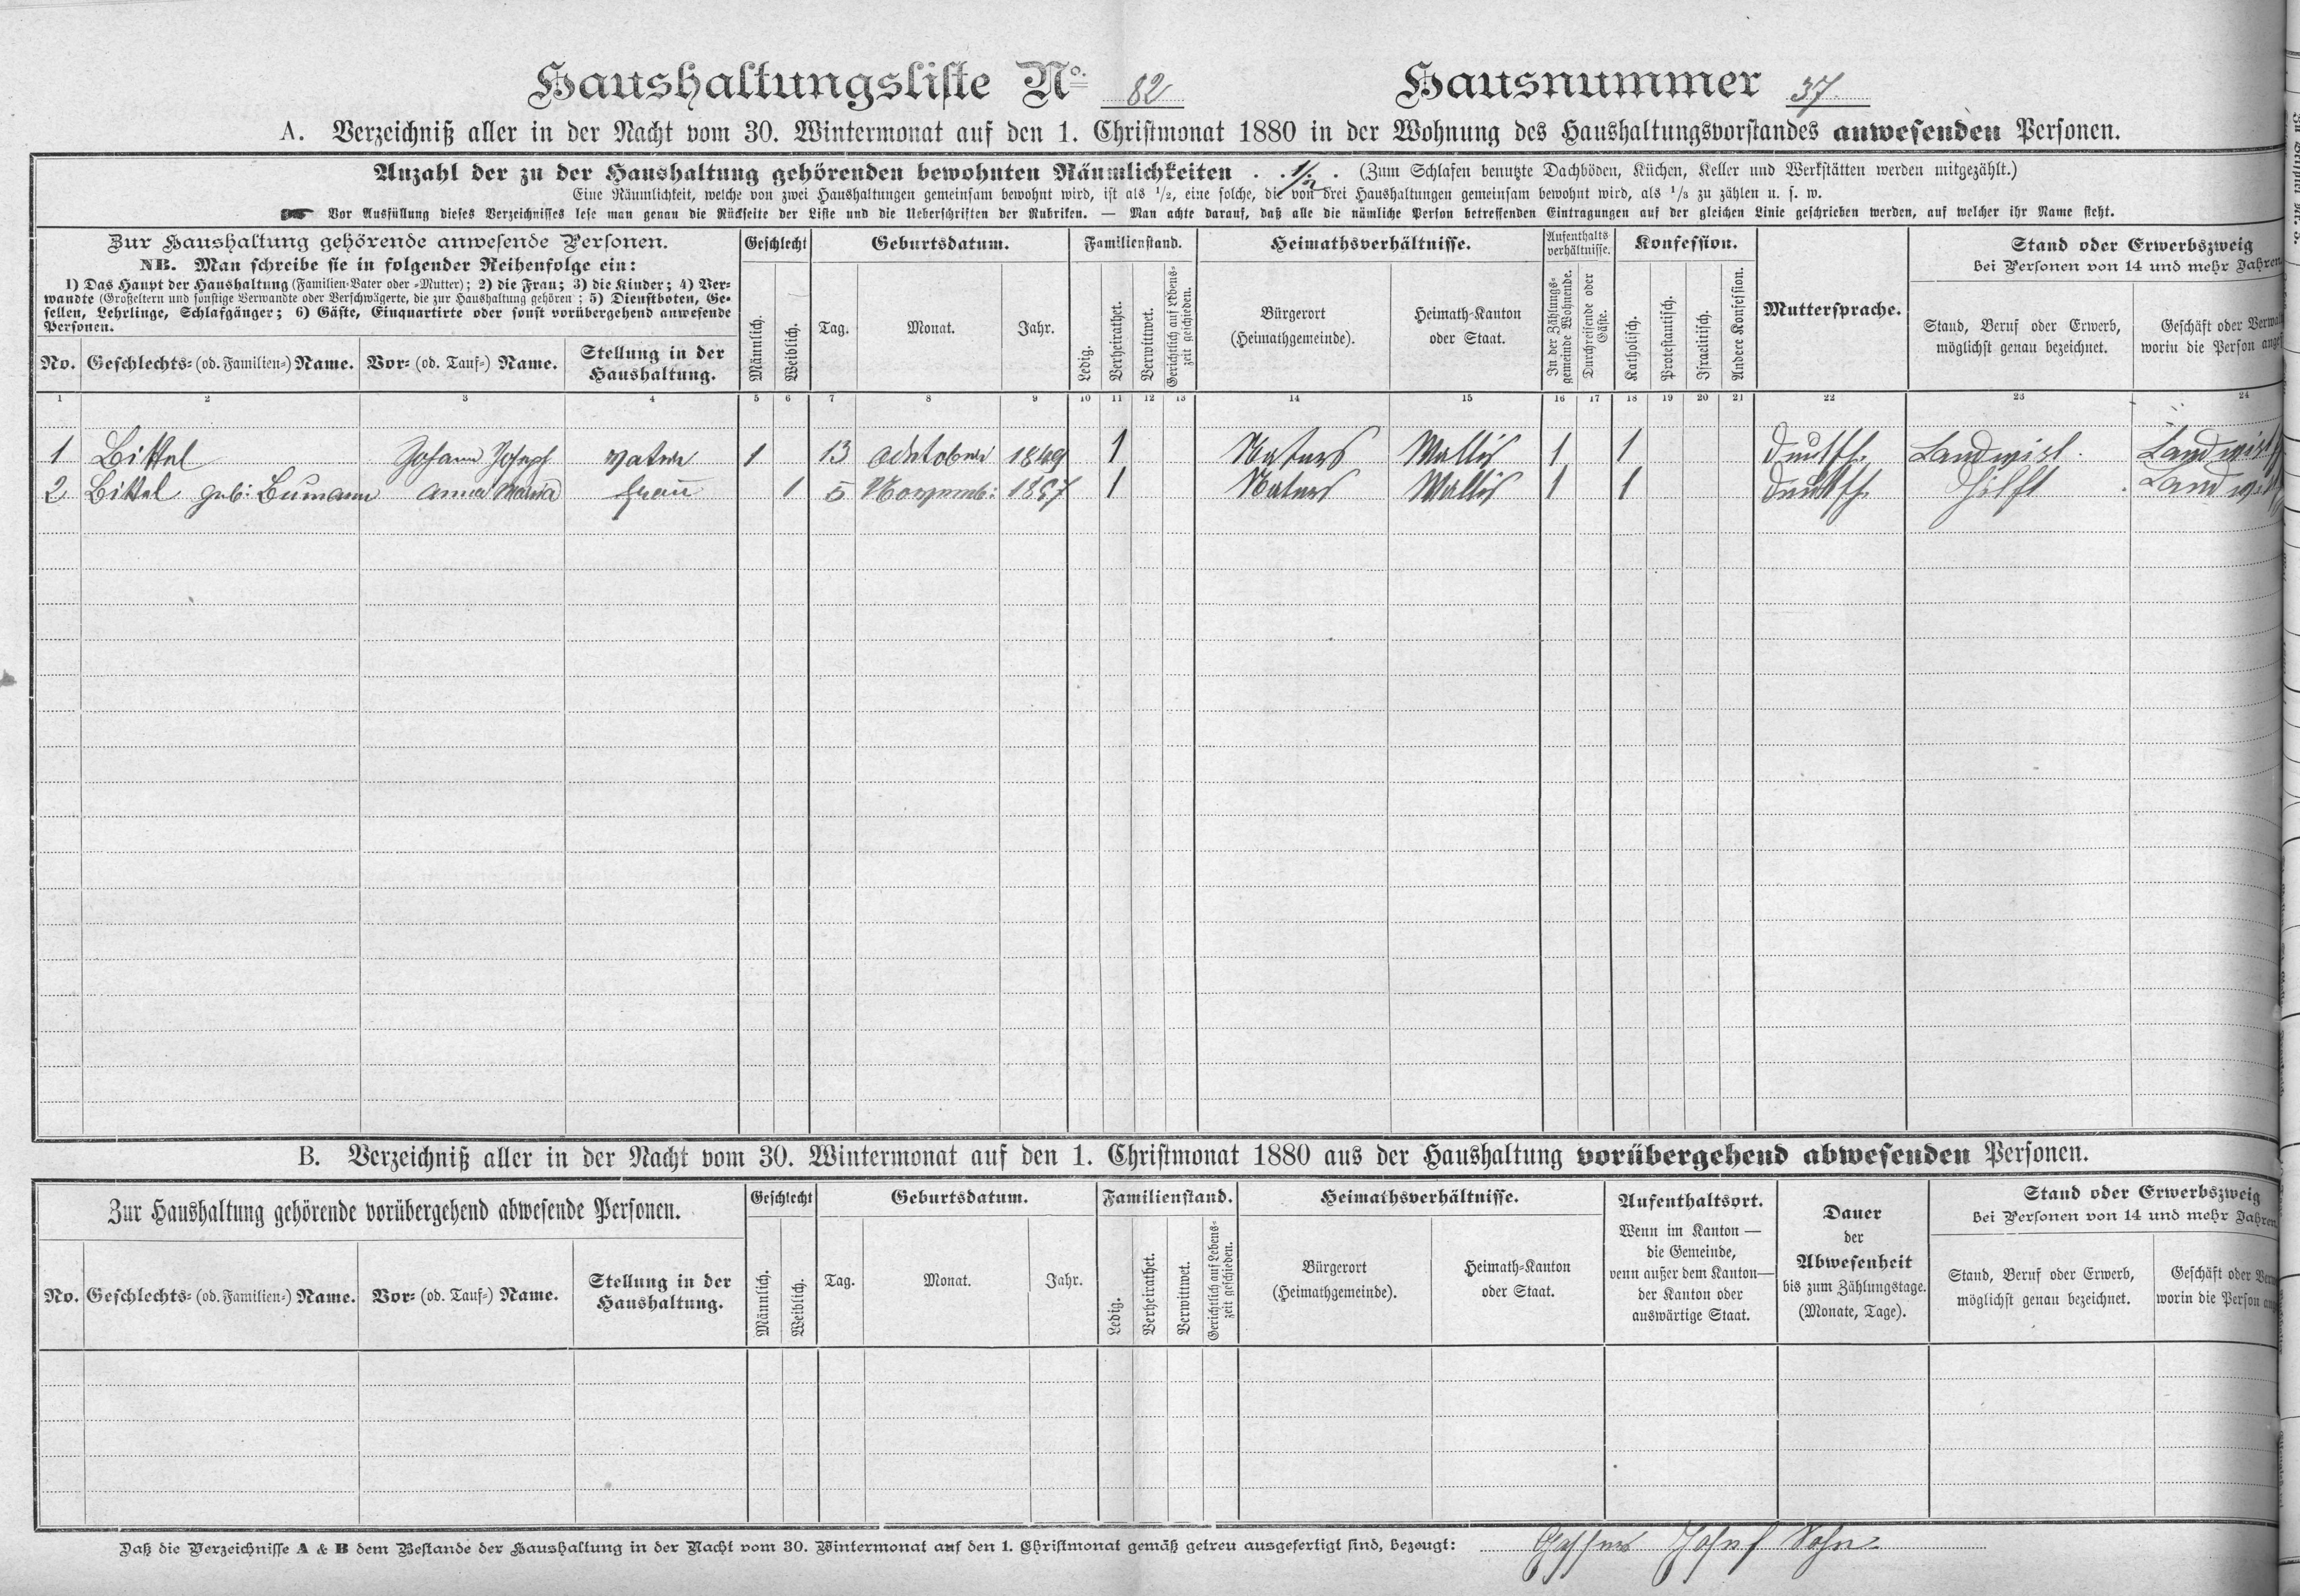 Haushaltungsliste No. 82 Hausnummer 37
A. Verzeichniß aller in der Nacht vom 30. Wintermonat auf den 1. Christmonat 1880 in der Wohnung des Haushaltungsvorstandes anwesenden Personen.
Anzahl der zu der Haushaltung gehörenden bewohnten Räumlichkeiten . . 1/2 . (Zum Schlafen benutzte Dachböden, Küchen, Keller und Werkstätten werden mitgezählt.)
Eine Räumlichkeit, welche von zwei Haushaltungen gemeinsam bewohnt wird, ist als 1/2, eine solche, die von drei Haushaltungen gemeinsam bewohnt wird, als 1/3 zu zählen u. s. w.
☛ Vor Ausfüllung dieses Verzeichnisses lese man genau die Rückseite der Liste und die Ueberschriften der Rubriken. — Man achte darauf, daß alle die nämliche Person betreffenden Eintragungen auf der gleichen Linie geschrieben werden, auf welcher ihr Name steht.
Zur Haushaltung gehörende anwesende Personen.
NB. Man schreibe sie in folgender Reihenfolge ein:
1) Das Haupt der Haushaltung (Familien-Vater oder -Mutter); 2) die Frau; 3) die Kinder; 4) Ver-
wandte (Großeltern und sonstige Verwandte oder Verschwägerte, die zur Haushaltung gehören); 5) Dienstboten, Ge-
sellen, Lehrlinge, Schlafgänger; 6) Gäste, Einquartirte oder sonst vorübergehend anwesende
Personen.
No. Geschlechts- (od. Familien-) Name. Vor- (od. Tauf-) Name. Stellung in der
Haushaltung.
Geschlecht
Männlich. Weiblich.
Geburtsdatum.
Tag. Monat. Jahr.
Familienstand.
Ledig. Verheirathet. Verwittwet. Gerichtlich auf Lebens-
zeit geschieden.
Heimathsverhältnisse.
Bürgerort
(Heimathgemeinde).
Heimath-Kanton
oder Staat.
Aufenthalts
verhältnisse.
In der Zählungs-
gemeinde Wohnende.
Durchreisende oder
Gäste.
Konfession.
Katholisch. Protestantisch. Israelitisch. Andere Konfession.
Muttersprache.
Stand oder Erwerbszweig
bei Personen von 14 und mehr Jahren
Stand, Beruf oder Erwerb,
möglichst genau bezeichnet.
Geschäft oder Verwal
worin die Person anges
1 2 3 4 5 6 7 8 9 10 11 12 13 14 15 16 17 18 19 20 21 22 23 24
1 Bittel Johann Joseph Vater 1 13 Ochtober 1849 1 Naters Wallis 1 1 deutsch. Landwirt. Landwirt
2 Bittel geb: Bumann Anna Maria frau 1 5 Novemb: 1857 1 Naters Wallis 1 1 deutsch hilft Landwirt
B. Verzeichniß aller in der Nacht vom 30. Wintermonat auf den 1. Christmonat 1880 aus der Haushaltung vorübergehend abwesenden Personen.
Zur Haushaltung gehörende vorübergehend abwesende Personen.
No. Geschlechts- (od. Familien-) Name. Vor- (od. Tauf-) Name. Stellung in der
Haushaltung.
Geschlecht
Männlich. Weiblich.
Geburtsdatum.
Tag. Monat. Jahr.
Familienstand.
Ledig. Verheirathet. Verwittwet. Gerichtlich auf Lebens-
zeit geschieden.
Heimathsverhältnisse.
Bürgerort
(Heimathgemeinde).
Heimath-Kanton
oder Staat.
Aufenthaltsort.
Wenn im Kanton —
die Gemeinde,
wenn außer dem Kanton—
der Kanton oder
auswärtige Staat.
Dauer
der
Abwesenheit
bis zum Zählungstage.
(Monate, Tage).
Stand oder Erwerbszweig
bei Personen von 14 und mehr Jahren
Stand, Beruf oder Erwerb,
möglichst genau bezeichnet.
Geschäft oder
worin die Person
Daß die Verzeichnisse A & B dem Bestande der Haushaltung in der Nacht vom 30. Wintermonat auf den 1. Christmonat gemäß getreu ausgefertigt sind, bezeugt: Josef Sohn